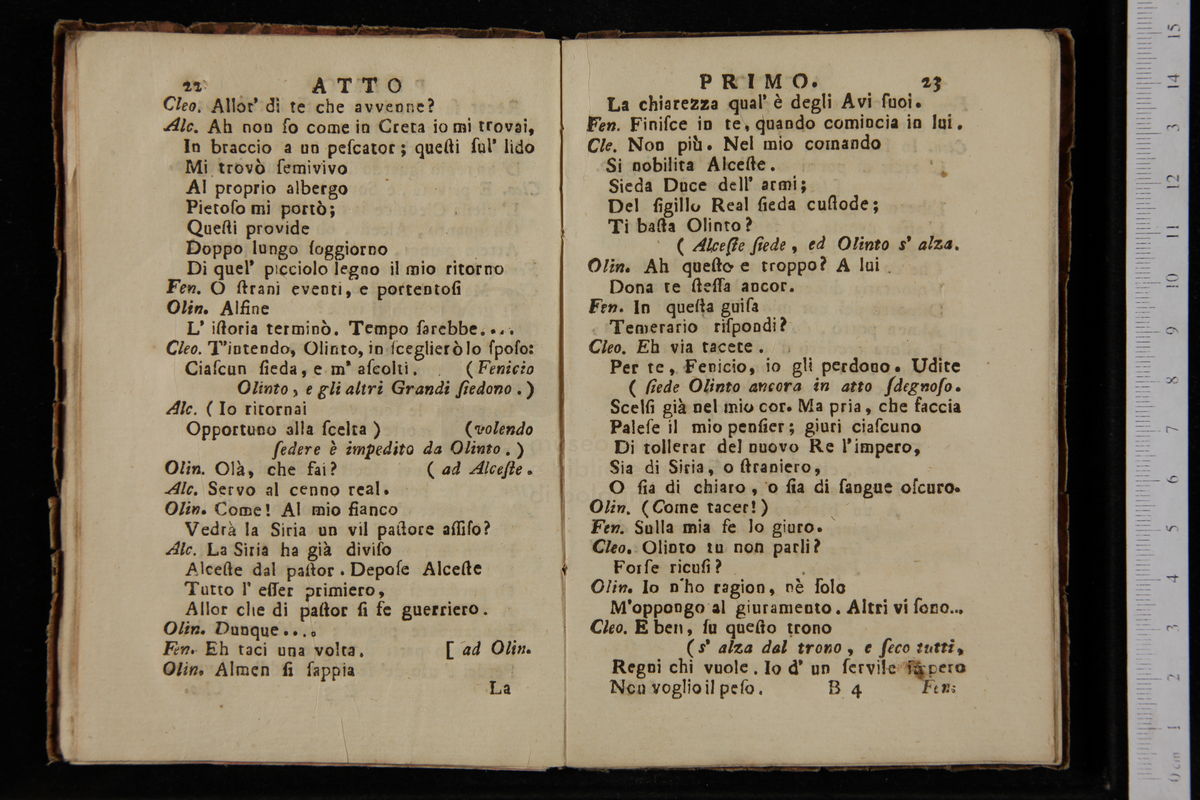 22 ATTO
Cleo. Allor' di te che avvenne?
Alc. Ah non ſo come in Creta io mi trovai,
In braccio a un peſcator; queſti ſul' lido
Mi trovò ſemivivo
Al proprio albergo
Pietoſo mi portò;
Queſti provide
Doppo lungo ſoggiorno
Di quel' picciolo legno il mio ritorno
Fen. O ſtrani eventi, e portentoſi
Olin. Alfine
L' iſtoria terminò. Tempo ſarebbe....
Cleo. T'intendo, Olinto, in ſceglierò lo ſpoſo:
Ciaſcun ſieda, e m' aſcolti. (Fenicio
Olinto, e gli altri Grandi ſiedono.)
Alc. (Io ritornai
Opportuno alla ſcelta) (volendo
ſedere è impedito da Olinto.)
Olin. Olà, che fai? (ad Alceſte.
Alc. Servo al cenno real.
Olin. Come! Al mio fianco
Vedrà la Siria un vil paſtore aſſiſo?
Alc. La Siria ha già diviſo
Alceſte dal paſtor. Depoſe Alceſte
Tutto l' eſſer primiero,
Allor che di paſtor ſi fe guerriero.
Olin. Dunque....
Fen. Eh taci una volta. [ad Olin.
Olin. Almen ſi ſappia
La
PRIMO. 23
La chiarezza qual' è degli Avi ſuoi.
Fen. Finiſce in te, quando comincia in lui.
Cle. Non più. Nel mio comando
Si nobilita Alceſte.
Sieda Duce dell' armi;
Del ſigillo Real ſieda cuſtode;
Ti baſta Olinto?
(Alceſte ſiede, ed Olinto s' alza.
Olin. Ah queſto e troppo? A lui
Dona te ſteſſa ancor.
Fen. In queſta guiſa
Temerario riſpondi?
Cleo. Eh via tacete.
Per te, Fenicio, io gli perdono. Udite
(ſiede Olinto ancora in atto ſdegnoſo.
Scelſi già nel mio cor. Ma pria, che faccia
Paleſe il mio penſier; giuri ciaſcuno
Di tollerar del nuovo Re l'impero,
Sia di Siria, o ſtraniero,
O ſia di chiaro, o ſia di ſangue oſcuro.
Olin. (Come tacer!)
Fen. Sulla mia fe lo giuro.
Cleo. Olinto tu non parli?
Forſe ricuſi?
Olin. Io n'ho ragion, nè ſolo
M'oppongo al giuramento. Altri vi ſono...
Cleo. E ben, ſu queſto trono
(s' alza dal trono, e ſeco tutti,
Regni chi vuole. Io d' un ſervile
Non voglio il peſo. B 4 Fen: